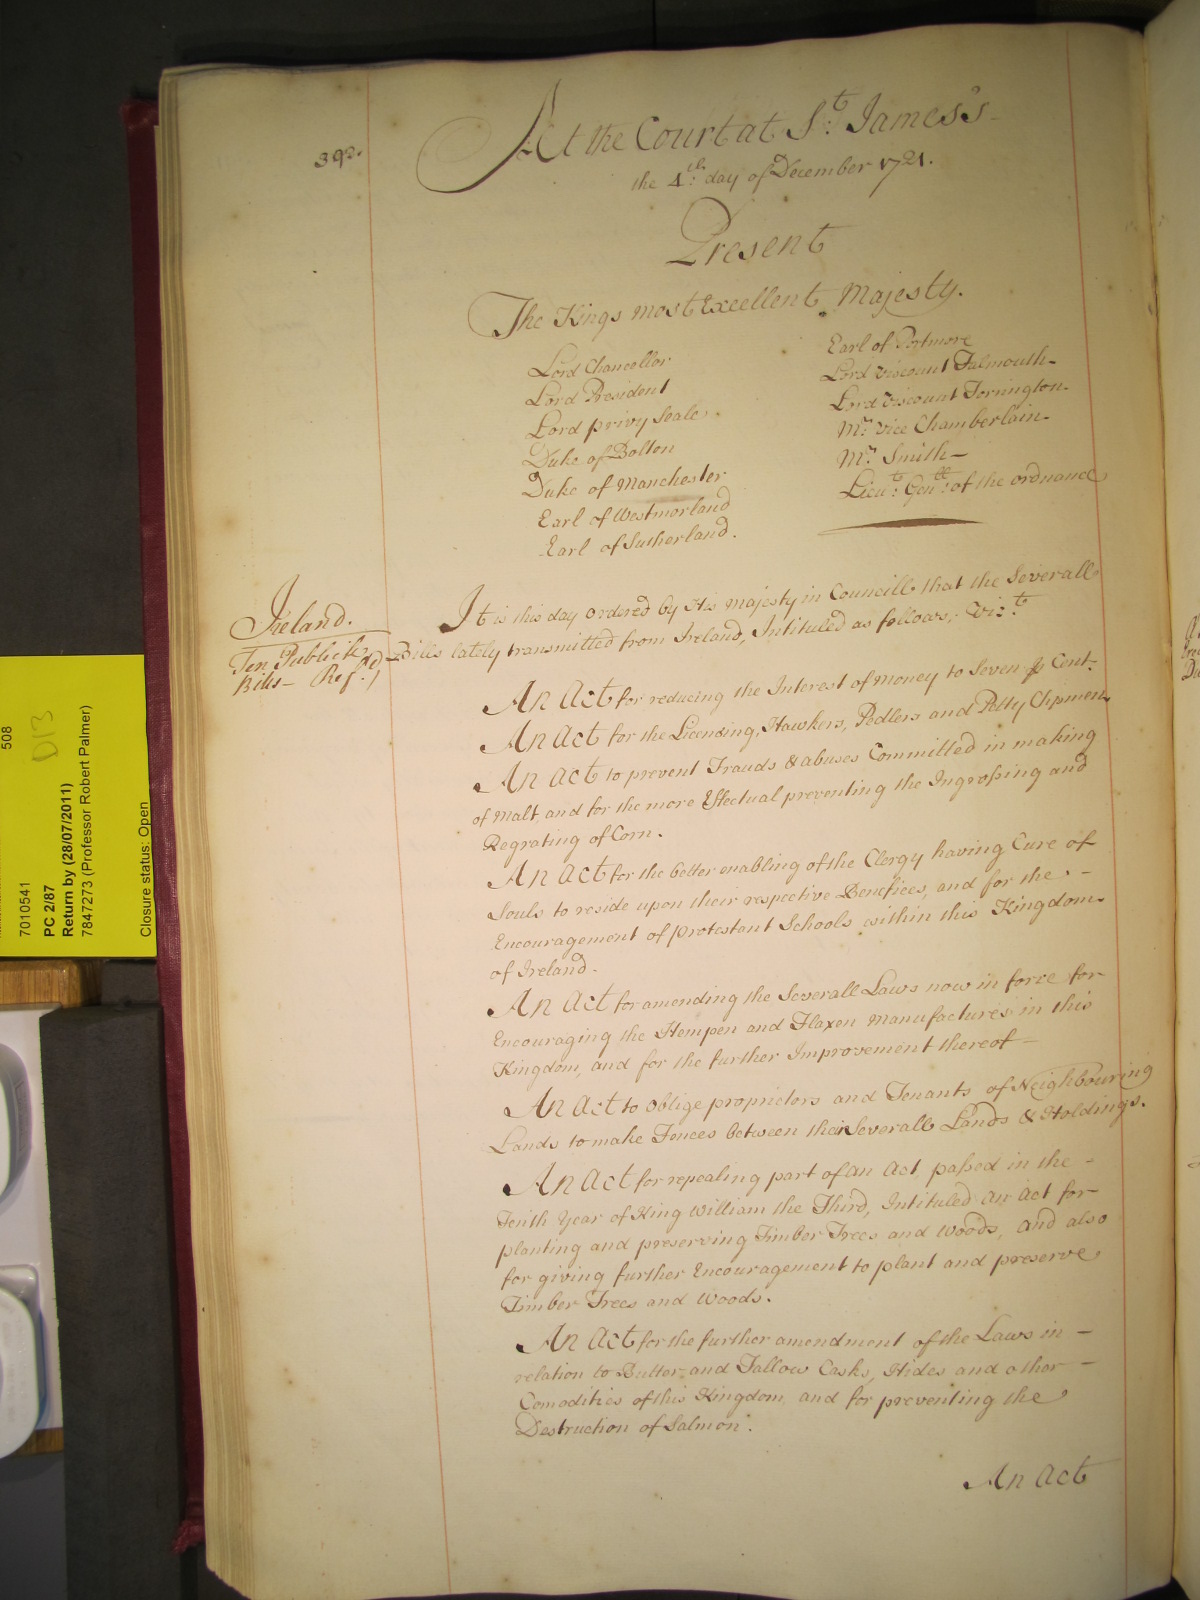 392.
At the Court at St: James's
the 4th: day of December 1721.
Present
The Kings most Excellent Majesty.
Lord Chancellor
Lord President
Lord privy Seale
Duke of Bolton
Duke of Manchester
Earl of Westmorland
Earl of Sutherland.
Earl of Portmore
Lord Viscount Falmouth-
Lord Viscount Torrington-
Mr: Vice Chamberlain-
Mr: Smith-
Lieut: Genll: of the ordnance
Ireland.
Ten Publick
Bills- Refd:
It is this day ordered by His Majesty in Councill that the Severall
Bills lately transmitted from Ireland, Intituled as follows, Vizt:
An Act for reducing the Interest of Money to Seven p Cent.
An Act for the Licensing, Hawkers, Pedlers and Petty Chpmen.
An Act to prevent Frauds & abuses Committed in making
of Malt and for the more Effectual preventing the Ingrossing and
Regrating of Corn.
An Act for the better enabling of the Clergy having Cure of
Souls to reside upon their respective Benefices, and for the -
Encouragement of protestant Schools within this Kingdom-
of Ireland-
An Act for amending the Severall Laws now in force for
Encouraging the Hempen and Flaxen Manufactures in this
Kingdom, and for the further Improvement thereof-
An Act to oblige proprietors and Tenants of Neighbouring
Lands to make Fences between their Severall Lands & Holdings.
An Act for repealing part of an Act, passed in the -
Tenth Year of King William the Third, Intituled an Act for
planting and preserving Timber Trees and Woods, and also
for giving further Encouragement to plant and preserve
Timber Trees and Woods.
An Act for the further amendment of the Laws in -
relation to Butter and Tallow Casks, Hides and other -
Comodities of this Kingdom, and for preventing the
Destruction of Salmon.
An Act
508
D13
7010541
PC 2/87
Return by (28/07/2011)
7847273 (Professor Robert Palmer)
Closure status: Open